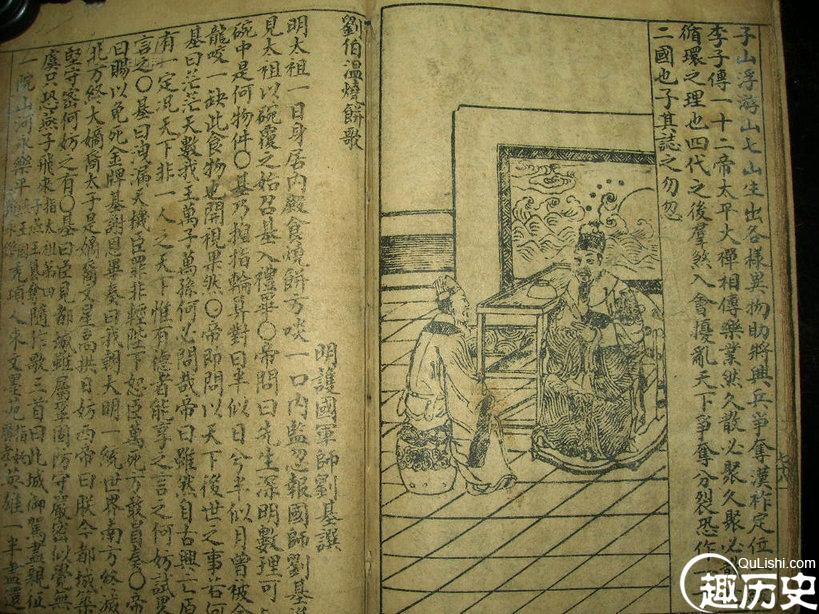 子山浮游山七山生出各樣異物助將興兵爭奪漢祚定位
李子傳一十二帝太平大禪相傳樂業然久散必聚久聚必
循環之理也四代之後羣煞入會擾亂天下爭奪分裂恐作
二國也子其誌之勿忽
劉伯溫燒餅歌
明護國軍師劉基撰
明太祖一日身居內殿食燒餅方啖一口內監忽報國師劉基
見太祖以碗覆之始召基入禮畢〇帝問曰先生深明數理可
碗中是何物件〇基乃掐指輪算對曰半似日兮半似月曾被金
龍咬一缺此食物也開視果然〇帝即問以天下後世之事若何
基曰茫茫天數我王萬子萬孫何必問哉帝曰雖然自古興亡原
有一定況天下非一人之天下惟有德者能享之言之何妨試畧
言之〇基曰洩漏天機臣罪非輕陛下恕臣萬死方敢冒奏〇帝
曰賜以免死金牌基謝恩畢奏曰我朝大明一統世界南方終滅
北方終太嫡裔太子是嫡裔文星高拱日妨西帝曰朕今都城築
堅守密何妨之有〇基曰臣見都城雖屬鞏固防守嚴密似覺無
虞只恐燕子飛來指太祖第四子燕王隨作歌三首曰此城御駕盡親征
一院山河永樂平禿頂人來文墨苑英雄一半盡還
QuLishi.com
趣历史